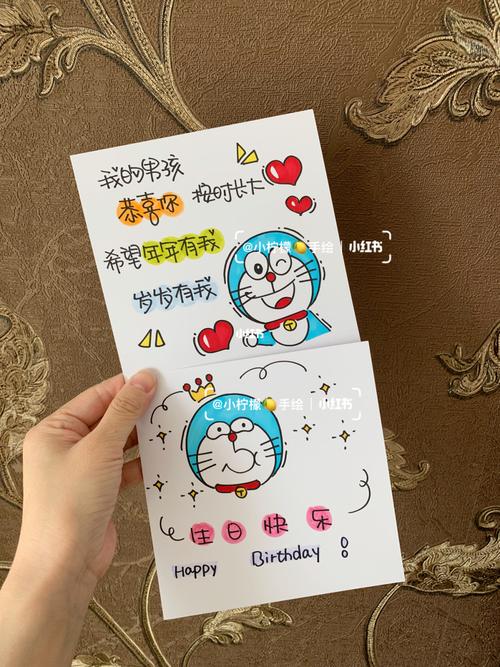 我的男孩
恭喜你 按时长大
希望年年有我
岁岁有我
@小柠檬🍋手绘 | 小红书
小红书
@小柠檬🍋手绘 | 小红书
生日快乐
Happy Birthday !